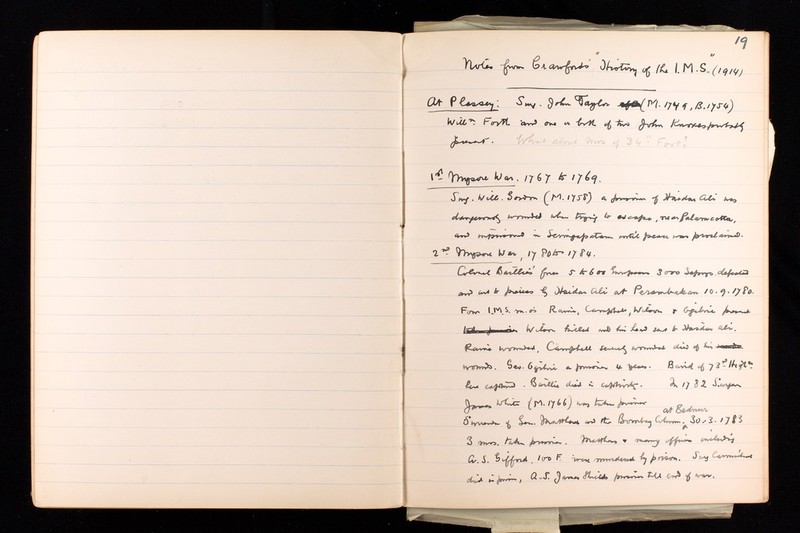 19
Notes from Crawford's "History of the I.M.S." (1914)
At Plassey: Surg. John Taylor (M. 1749, B. 1754)
Willm. Forth and one or both of two John Knoxes probably
present. What about mos of 39th Foot?
1st Mysore War. 1767 to 1769.
Surg. Will. Gordon (M. 1758) a prisoner of Haidar Ali was
dangerously wounded when trying to escape, near Palamcotta,
and imprisoned in Seringapatam until peace was proclaimed.
2nd Mysore War, 1780 to 1784.
Colonel Baillie's force 5 to 600 Europeans 3000 Sepoys, defeated
and cut to pieces by Haidar Ali at Perambakam 10.9.1780.
Four I.M.S. m.o's Raine, Campbell, Wilson & Ogilvie present
Wilson killed and his head sent to Haidar Ali.
Raine wounded, Campbell severely wounded died of his
wounds. Geo. Ogilvie a prisoner 4 years. Baird of 73rd
here captured. Baillie died in captivity. In 1782 Surgeon
James White (M. 1766) was taken prisoner
at Bednur
Surrender of Gen. Matthews and the Bombay Column, 30.3.1783
3 mos. taken prisoner. Matthews & many officers including
A.S. Gifford, 100 F. were murdered by poison. Surg Carmichael
died in prison, A.S. James Shields prisoner till end of war.